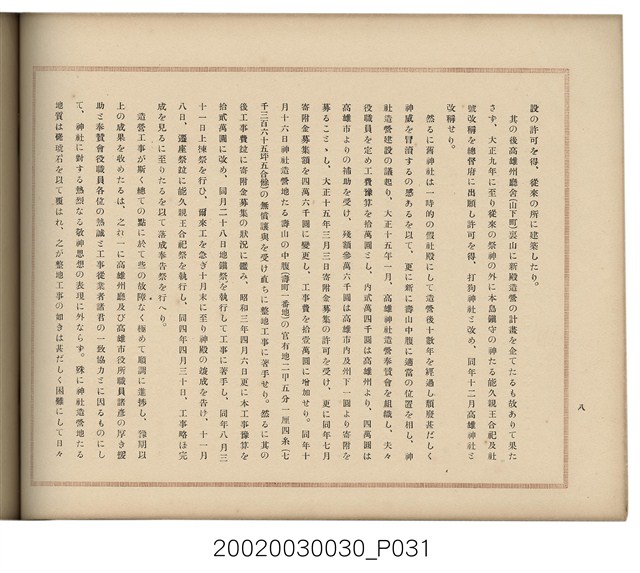 設の許可を得、從來の所に建築したり。
其の後高雄州廳舍(山下町)裏山に新殿造營の計畫を企てたるも故ありて果た
さず、大正九年に至り從來の祭神の外に本島鎭守の神たる能久親王合祀及社
號改稱を總督府に出願し許可を得、打狗神社と改め、同年十二月高雄神社と
改稱せり。
然るに舊神社は一時的の假社殿にして造營後十數年を經過し頽廢甚だしく
神威を冒瀆するの感あるを以て、更に新に壽山中腹に適當の位置を相し、神
社造營建設の議起り、大正十五年一月、高雄神社造營奉贊會を組織し、夫々
役職員を定め工費豫算を拾萬圓とし、內貳萬四千圓は高雄州より、四萬圓は
高雄市よりの補助を受け、殘額參萬六千圓は高雄市內及州下一圓より寄附を
募ることゝし、大正十五年三月三日寄附金募集の許可を受け、更に同年七月
寄附金募集額を四萬六千圓に變更し、工事費を拾壹萬圓に增加せり。同年十
月十六日神社造營地たる壽山の中腹(壽町一番地)の官有地二甲五分一厘四糸(七
千三百六十五坪五合他)の無償讓與を受け直ちに整地工事に著手せり。然るに其の
後工事費竝に寄附金募集の狀況に鑑み、昭和三年四月六日更に本工事豫算を
拾貳萬圓に改め、同月二十八日地鎭祭を執行して工事に著手し、同年八月三
十一日上棟祭を行ひ、爾來工を急ぎ十月末に至り神殿の竣成を告げ、十一月
八日、遷座祭竝に能久親王合祀祭を執行し、同四年四月三十日、工事略ほ完
成を見るに至りたるを以て落成奉告祭を行へり。
造營工事が斯く總ての點に於て些の故障なく極めて順調に進捗し、豫期以
上の成果を收めたるは、之れ一に高雄州廳及び高雄市役所職員諸彥の厚き援
助と奉贊會役職員各位の熱誠と工事從業者諸君の一致協力とに因るものにし
て、神社に對する熱烈なる敬神思想の表現に外ならず。殊に神社造營地たる
地質は硓𥑮石を以て覆はれ、之が整地工事の如きは甚だしく困難にして日々
八
20020030030_P031